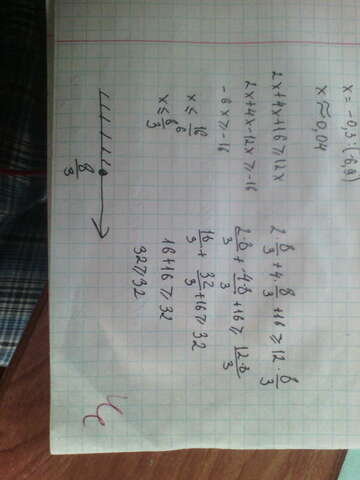 x = -0,3 : (6,8)
x ≈ 0,04
2x+4x+16 ≥ 12x
2x+4x-12x ≥ -16
-6x ≥ -16
x ≤ 16/6
x ≤ 8/3
8/3
2·8/3 + 4·8/3 + 16 ≥ 12·8/3
2·8/3 + 4·8/3 + 16 ≥ 12·8/3
16/3 + 32/3 + 16 ≥ 32
16+16 ≥ 32
32 ≥ 32